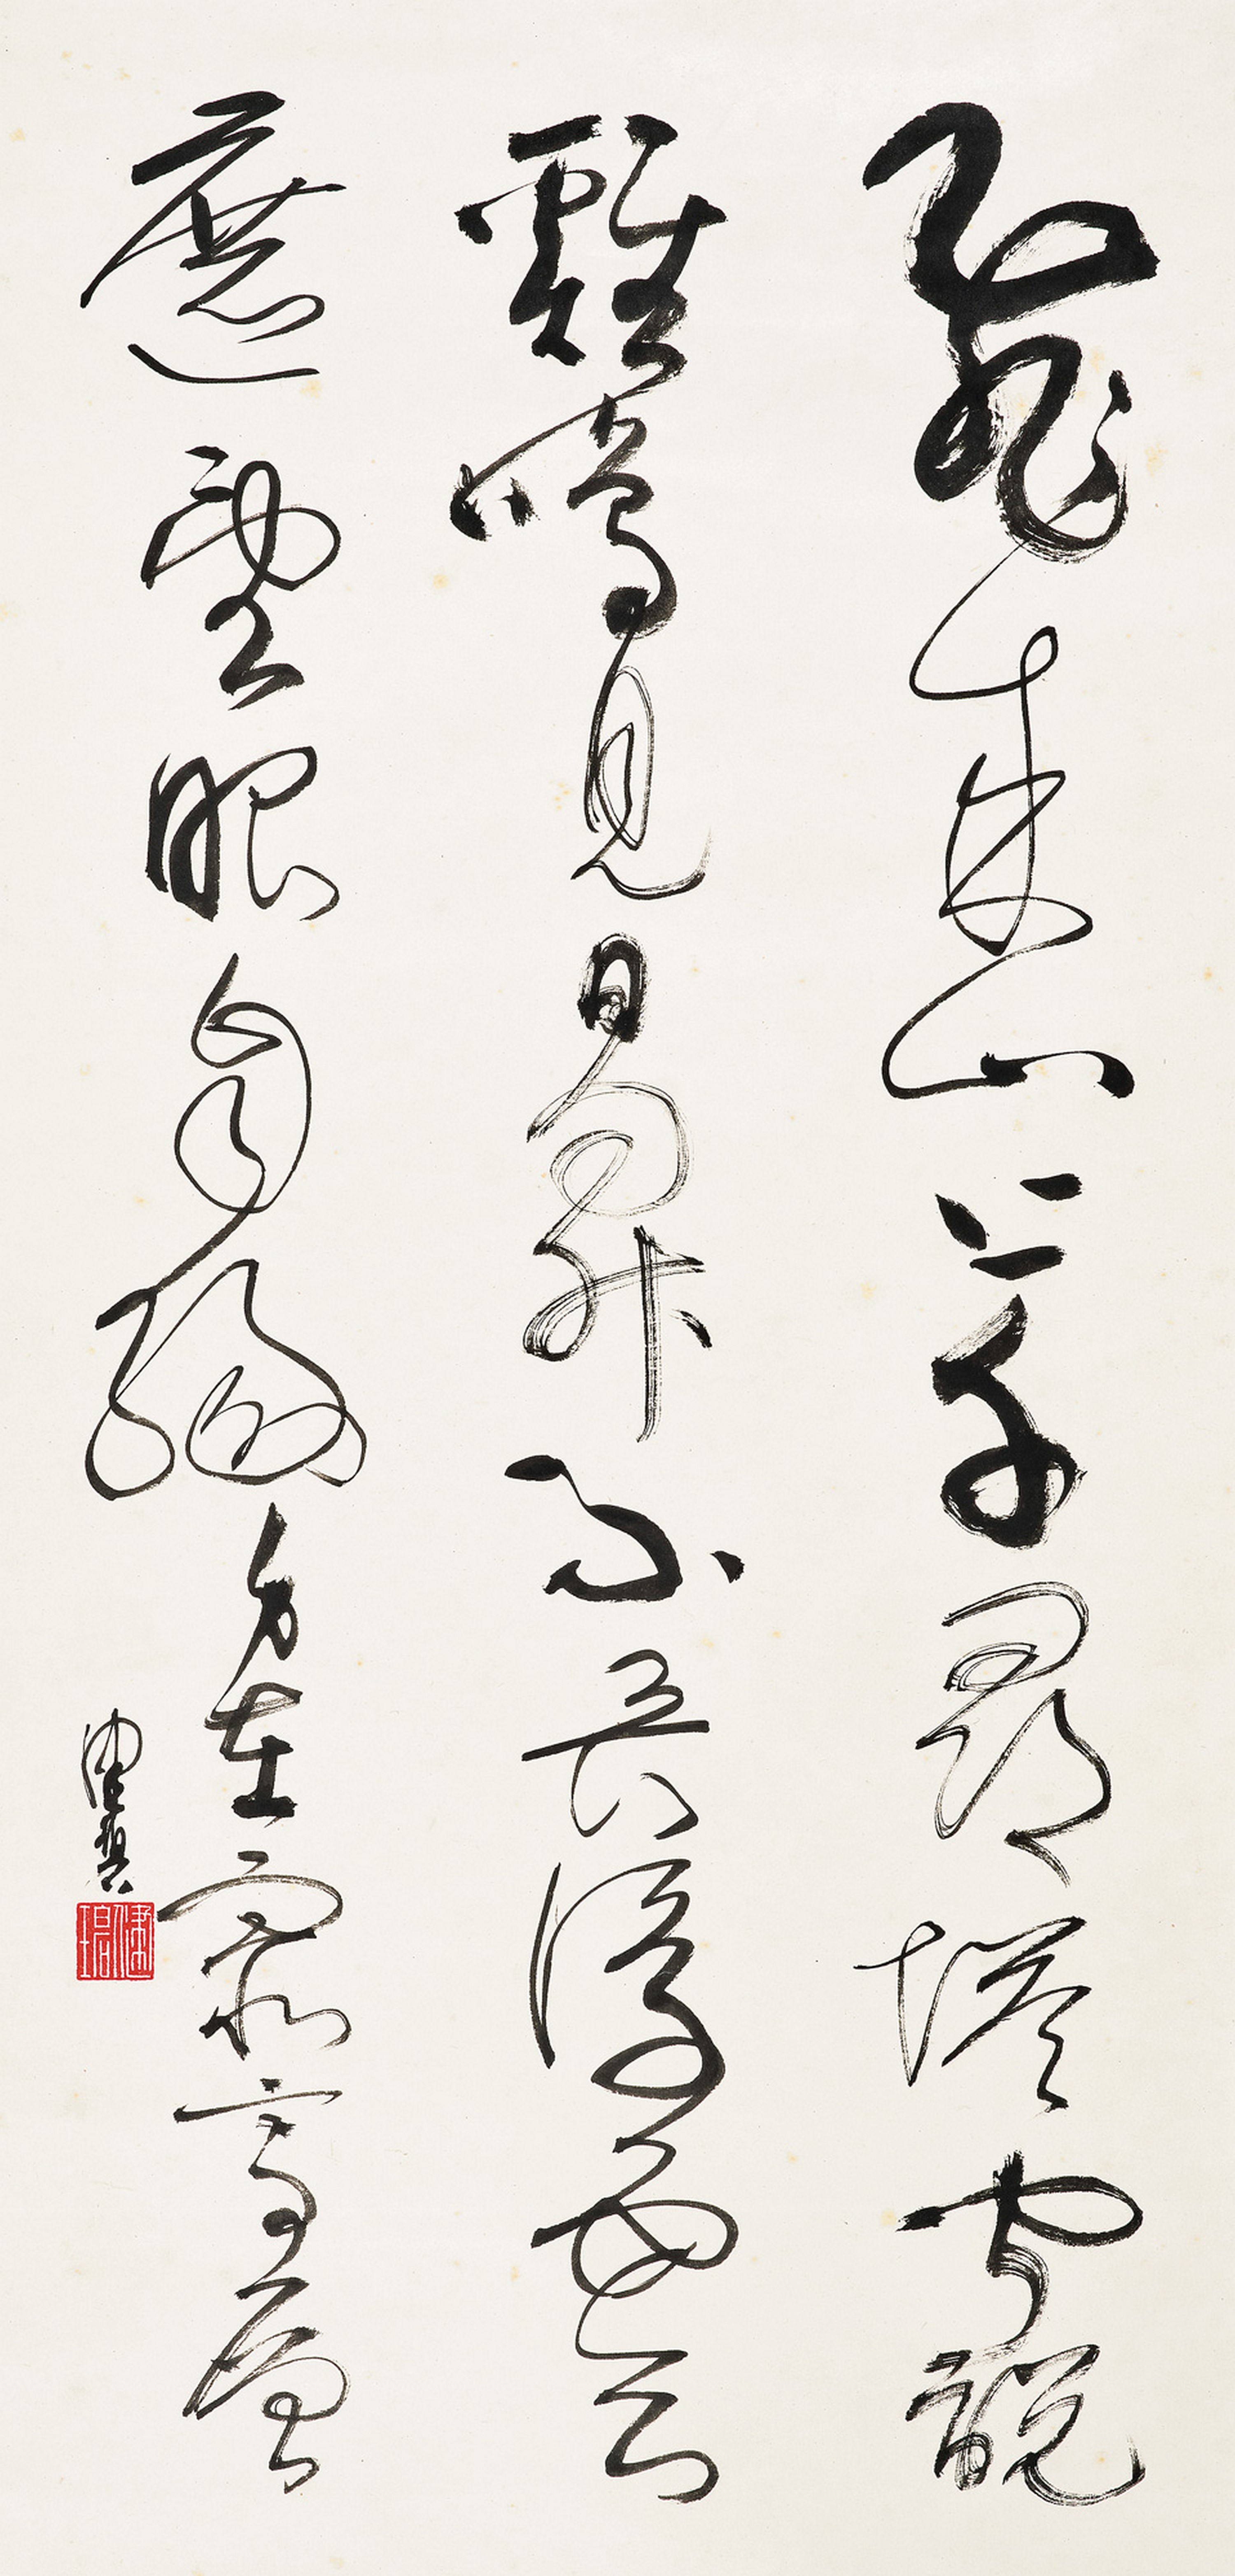 飛來山上千尋塔聞說
雞鳴見日昇不畏浮雲
遮望眼自緣身在最高層